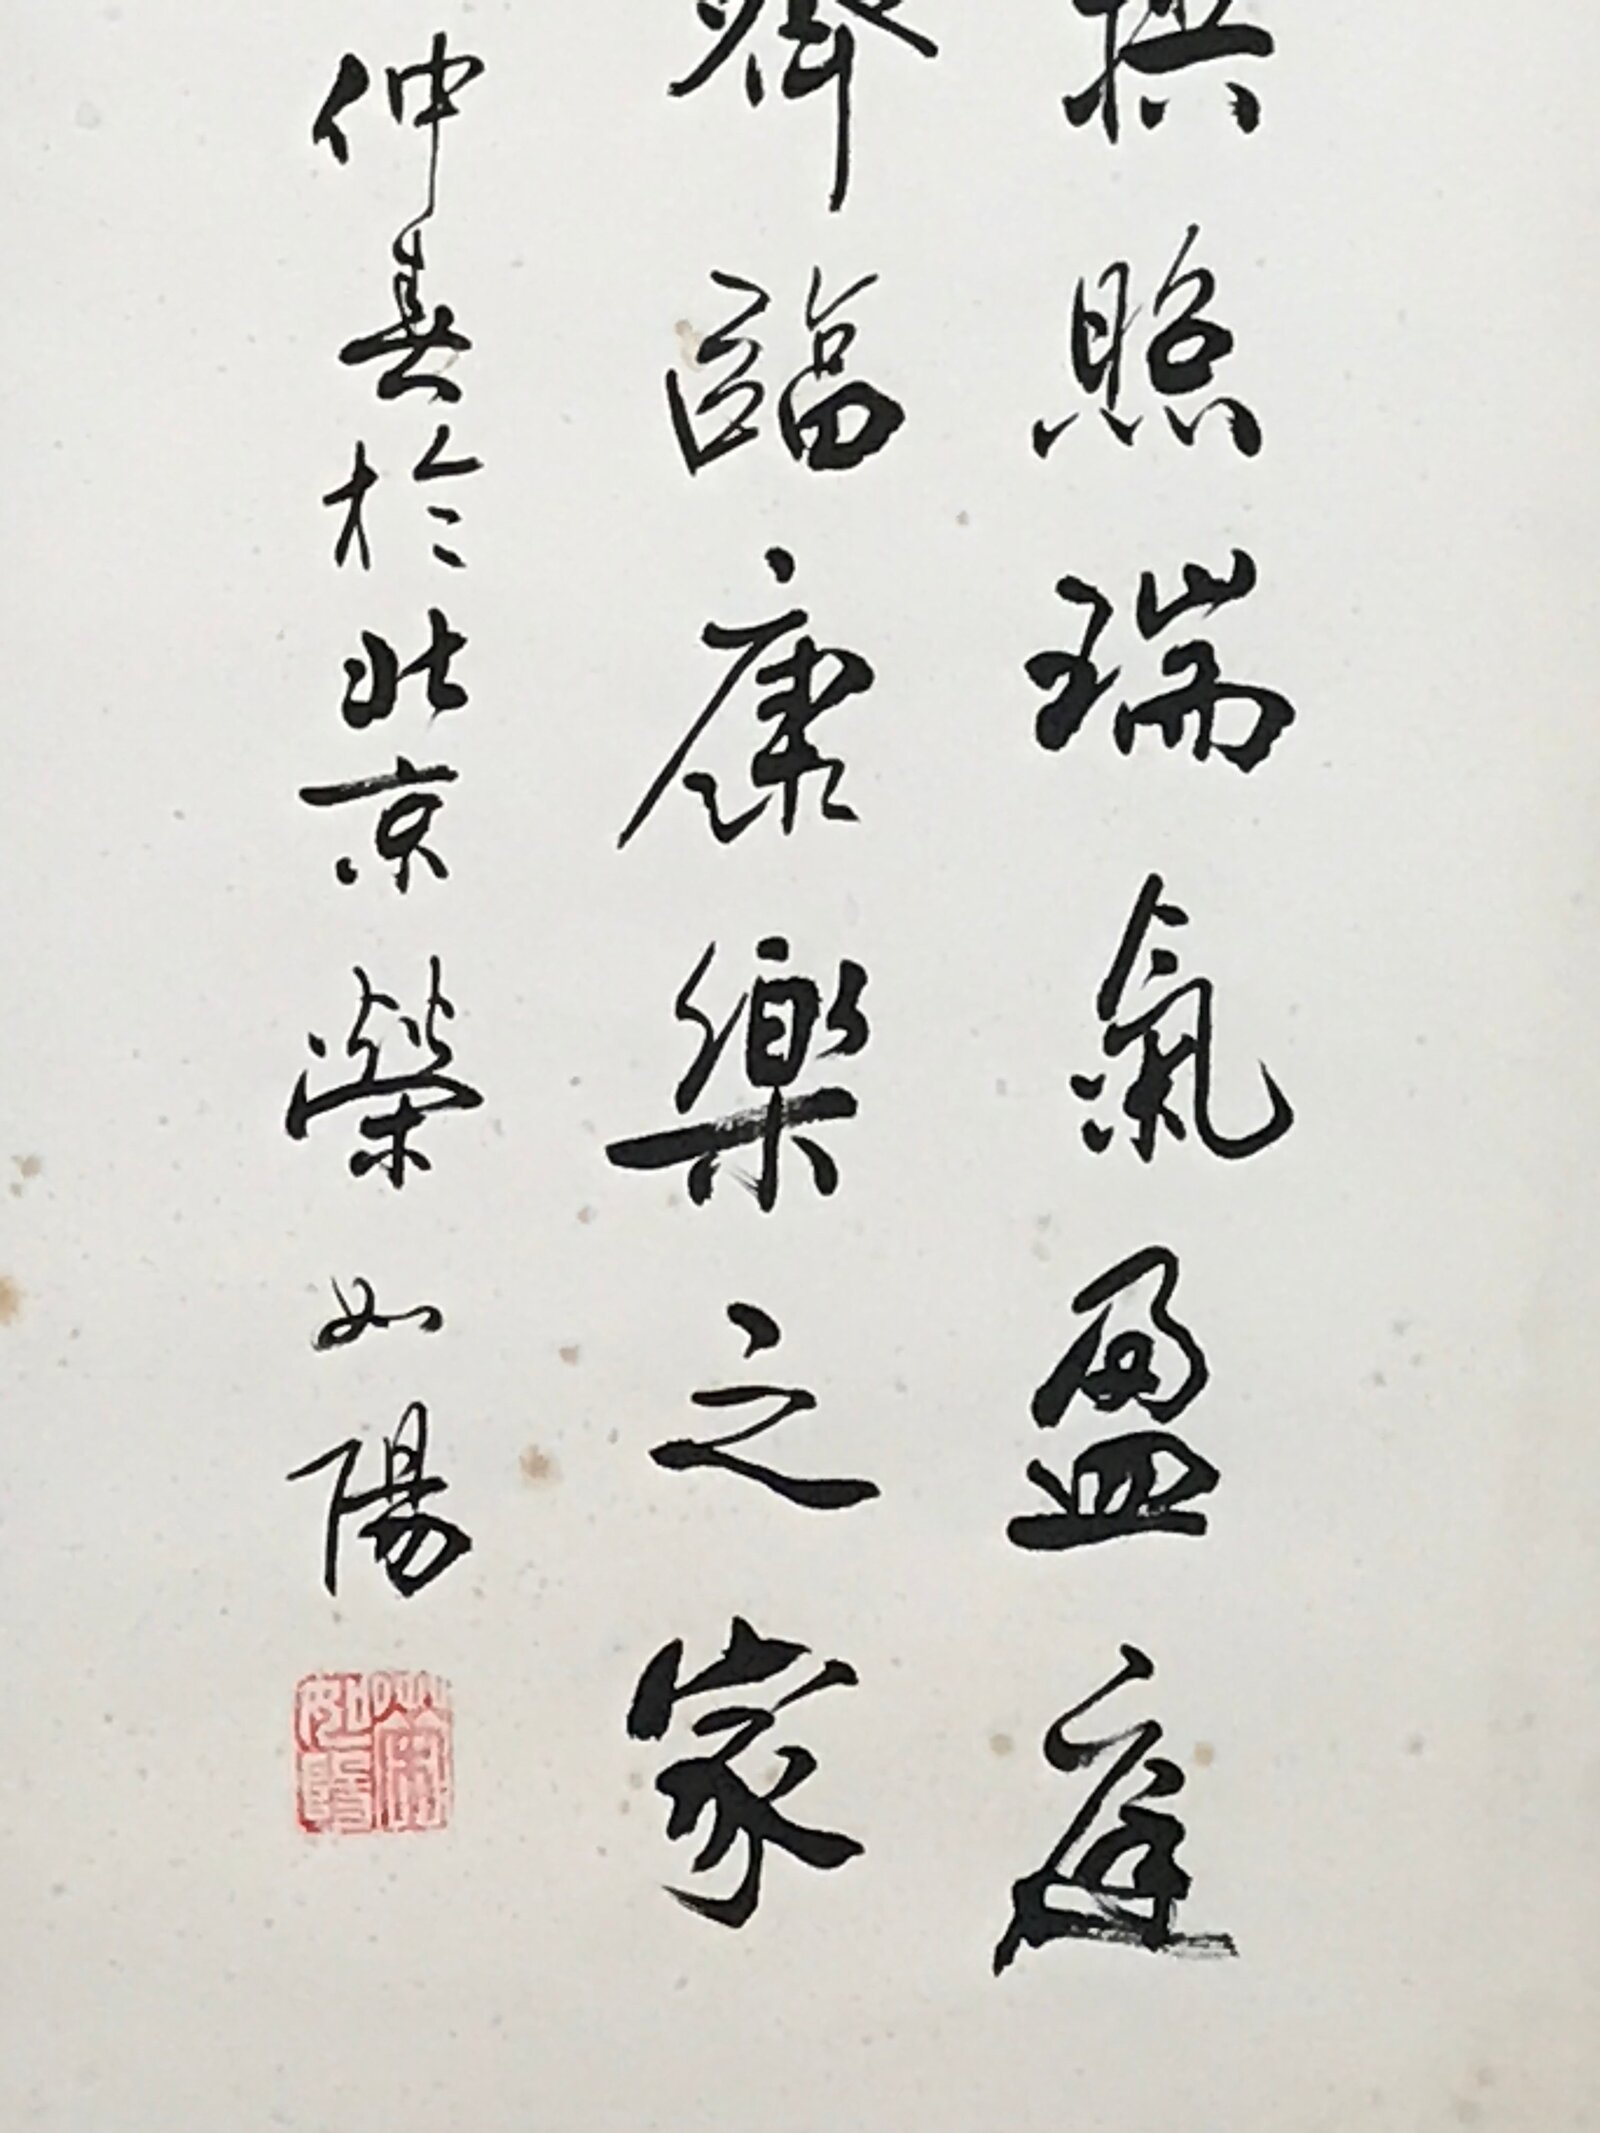 照瑞氣盈庭
齊臨康樂之家
仲春於北京榮如陽
榮如陽